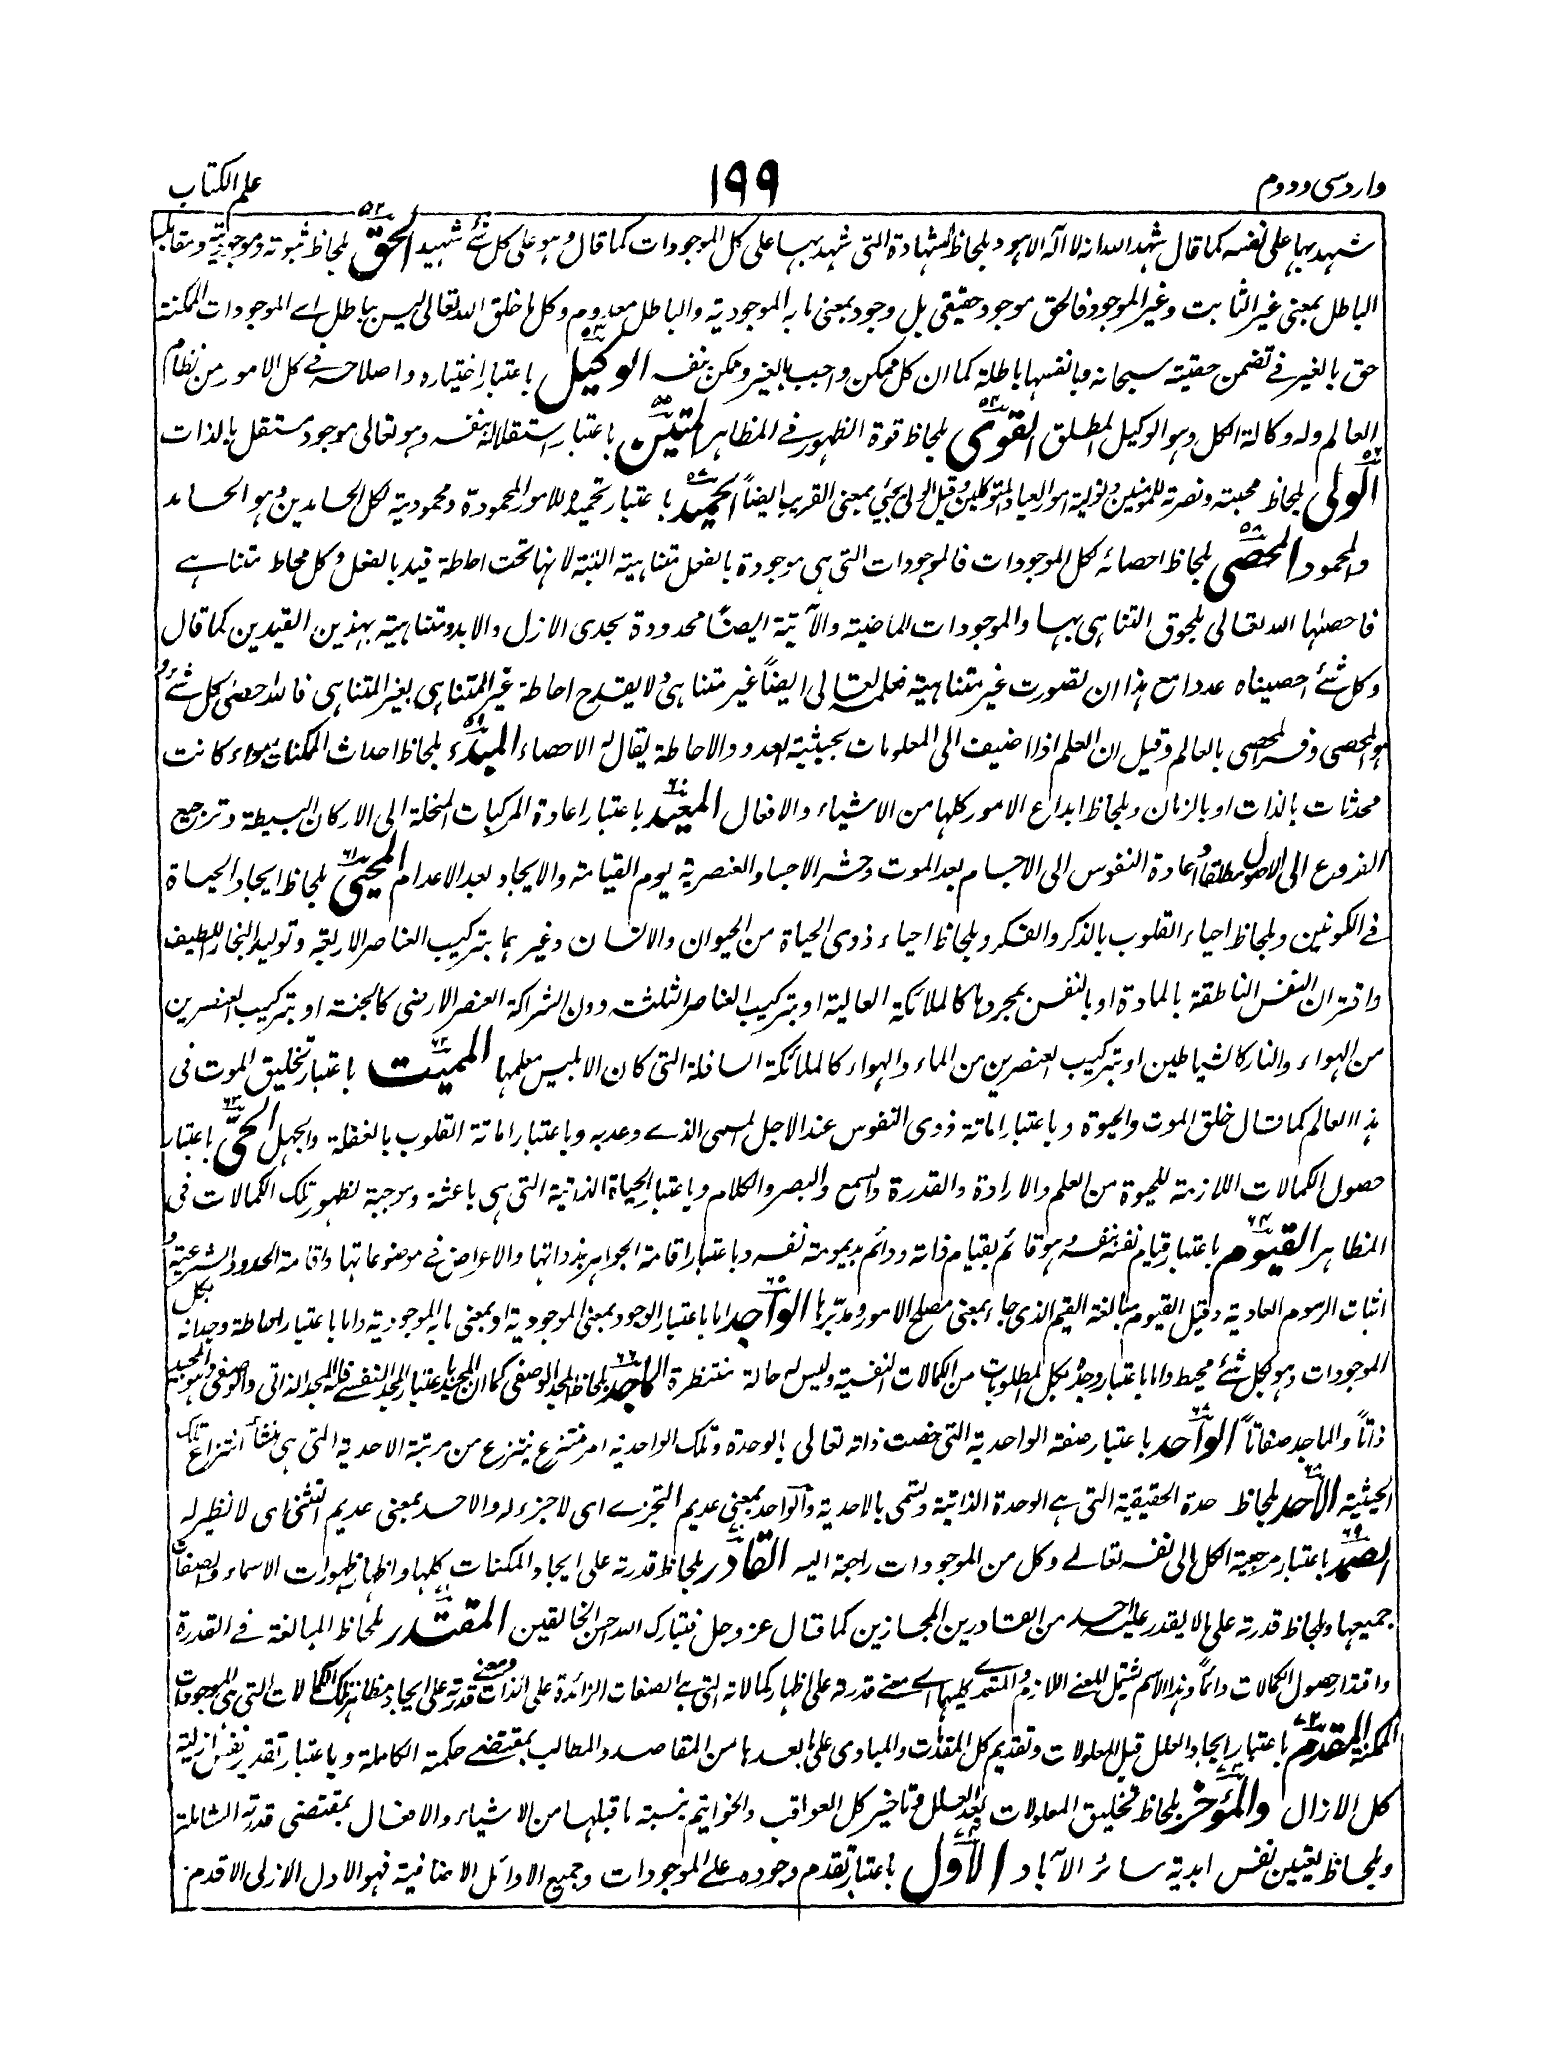 وارد سی و دوم ۱۹۹ علم الکتاب
شهد بها علی نفسه کما قال شهد الله انه لا اله الا هو و بلحاظ الشهادة التی شهد بها علی کل الموجودات کما قال و هو علی کل شئ شهید الحق ۵۲ بلحاظ ثبوته و موجودیته و مقابلها
الباطل بمعنی غیر الثابت و غیر الموجود فالحق موجود حقیقی بل وجود بمعنی ما به الموجودیة والباطل معدوم و کل ما خلق الله تعالی لیس بباطل اے الموجودات الممکنة
حق بالغیر فے تضمن حقیته سبحانه و بانفسها باطلة کما ان کل ممکن واجب بالغیر و ممکن بنفسه الوکیل ۵۳ باعتبار اختیاره و اصلاحه فے کل الامور من نظام
العالم وله وکالة الکل و هو الوکیل المطلق القوی ۵۴ بلحاظ قوة الظهور فے المظاهر المتین ۵۵ باعتبار استقلاله بنفسه و هو تعالی موجود مستقل بالذات
الولی ۵۶ بلحاظ محبته و نصرته للمومنین و تولیة امور العباد المتوکلین و قیل الولی یجئ بمعنی القریب ایضاً الحمید ۵۷ باعتبار تحمیده للامور المحمودة و محمودیة لکل الحامدین و هو الحامد
والمحمود المحصی ۵۸ بلحاظ احصائه لکل الموجودات فالموجودات التی هی موجودة بالفعل متناهیة البتة لانها تحت احاطة قید بالفعل و کل محاط متناهے
فاحصٰها الله تعالی بلحوق التناهی بها والموجودات الماضیة والآتیة ایضًا محدودة بحدی الازل والابد و متناهیة بهذین القیدین کما قال
و کل شئ احصیناه عددا مع هذا ان تصورت غیر متناهیة فعلمه تعالی ایضاً غیر متناهی و لا یقدح احاطة غیر المتناهی بغیر المتناهی فالله احصی کل شئ و
هو المحصی و فسر المحصی بالعالم و قیل ان العلم اذا اضیف الی المعلومات بحیثیة العدد والاحاطة یقال له الاحصاء المبدء ۵۹ بلحاظ احداث الممکنات سواء کانت
محدثات بالذات او بالزمان و بلحاظ ابداع الامور کلها من الاشیاء والافعال المعید ۶۰ باعتبار اعادة المرکبات المنحلة الی الارکان البسیطة و ترجیع
الفروع الی الاصول مطلقاً و اعادة النفوس الی الاجسام بعد الموت و حشر الاجساد العنصریة یوم القیامة والایجاد بعد الاعدام المحیی ۶۱ بلحاظ ایجاد الحیاة
فے الکونین و بلحاظ احیاء القلوب بالذکر والفکر و بلحاظ احیاء ذوی الحیاة من الحیوان والانسان و غیرهما بترکیب العناصر الاربعة و تولید البخار اللطیف
و اقتران النفس الناطقة بالمادة او بالنفس بمجردها کالملائکة العالیة او بترکیب العناصر الثلثة دون الشراکة العنصر الارضی کالجنة او بترکیب العنصرین
من الهواء والنار کالشیاطین او بترکیب العنصرین من الماء والهواء کالملائکة السافلة التی کان الابلیس معلمها الممیت ۶۲ باعتبار تخلیق الموت فی
هذا العالم کما قال خلق الموت والحیوة و باعتبار اماتة ذوی النفوس عند الاجل المسمی الذے وعد به و باعتبار اماتة القلوب بالغفلة والجهل الحی ۶۳ باعتبار
حصول الکمالات اللازمة للحیوة من العلم والارادة والقدرة والسمع والبصر والکلام و باعتبار الحیاة الذاتیة التی هی باعثة و موجبة لظهور تلک الکمالات فی
المظاهر القیوم ۶۴ باعتبار قیام نفسه بنفسه و هو قائم بقیام ذاته و دائم بدیمومة نفسه و باعتبار اقامة الجواهر بذواتها والاعراض فے موضوعاتها و اقامة الحدود الشرعیة و
اثبات الرسوم العادیة و قیل القیوم مبالغة القیم الذی جاء بمعنی مصلح الامور و مدبرها الواجد ۶۵ اما باعتبار الوجود بمعنی الموجودیة او بمعنی ما به الموجودیة و اما باعتبار احاطة وجدانه بکل
الموجودات و هو بکل شئ محیط و اما باعتبار وجدٍ بکل المطلوبات من الکمالات النفسیة و لیس له حالة منتظرة الماجد ۶۶ بلحاظ المجد الوصفی کما ان المجید باعتبار المجد النفسے فله المجد الذاتی والوصفی و هو المجید
ذاتاً والماجد صفاتاً الواحد ۶۷ باعتبار صفة الواحدیة التی خصت ذاته تعالی بالوحدة و تلک الواحدیة امر منتزع ینتزع من مرتبة الاحدیة التی هی منشأ انتزاع تلک
الحیثیة الاحد ۶۸ بلحاظ حدة الحقیقیة التی هے الوحدة الذاتیة و تسمی بالاحدیة والواحد بمعنی عدیم التجزے ای لا جزء له والاحد بمعنی عدیم التثنی ای لا نظیر له
الصمد ۶۹ باعتبار مرجعیة الکل الی نفسه تعالے و کل من الموجودات راجعة الیه القادر ۷۰ بلحاظ قدرته علی ایجاد الممکنات کلها و اظهار ظهورات الاسماء والصفات
جمیعها و بلحاظ قدرته علی ما لا یقدر علیه احد من القادرین المجازین کما قال عز و جل فتبارک الله احسن الخالقین المقتدر ۷۱ بلحاظ المبالغة فے القدرة
و اقتدار حصول الکمالات دائماً و هذا الاسم یشتمل للمعنی اللازم والمتعدے کلیهما اے معنے قدرته علی اظهار کمالاته التی هے الصفات الزائدة علی الذات و معنے قدرته علی ایجاد مظاهر تلک الکمالات التی هی الموجودات
الممکنة المقدم ۷۲ باعتبار ایجاد العلل قبل المعلولات و تقدیم کل المقدمات والمبادی علی ما بعدها من المقاصد والمطالب بمقتضے حکمة الکاملة و باعتبار تقدم نفس ازلیة
کل الازال والمؤخر ۷۳ بلحاظ تخلیق المعلولات بعد العلل و تاخیر کل العواقب والخواتیم بنسبة ما قبلها من الاشیاء والافعال بمقتضی قدرته الشاملة
و بلحاظ تعیین نفس ابدیة سائر الآباد الاول باعتبار تقدم وجوده علے الموجودات و جمیع الاوائل الاضافیة فهو الاول الازلی الاقدم من